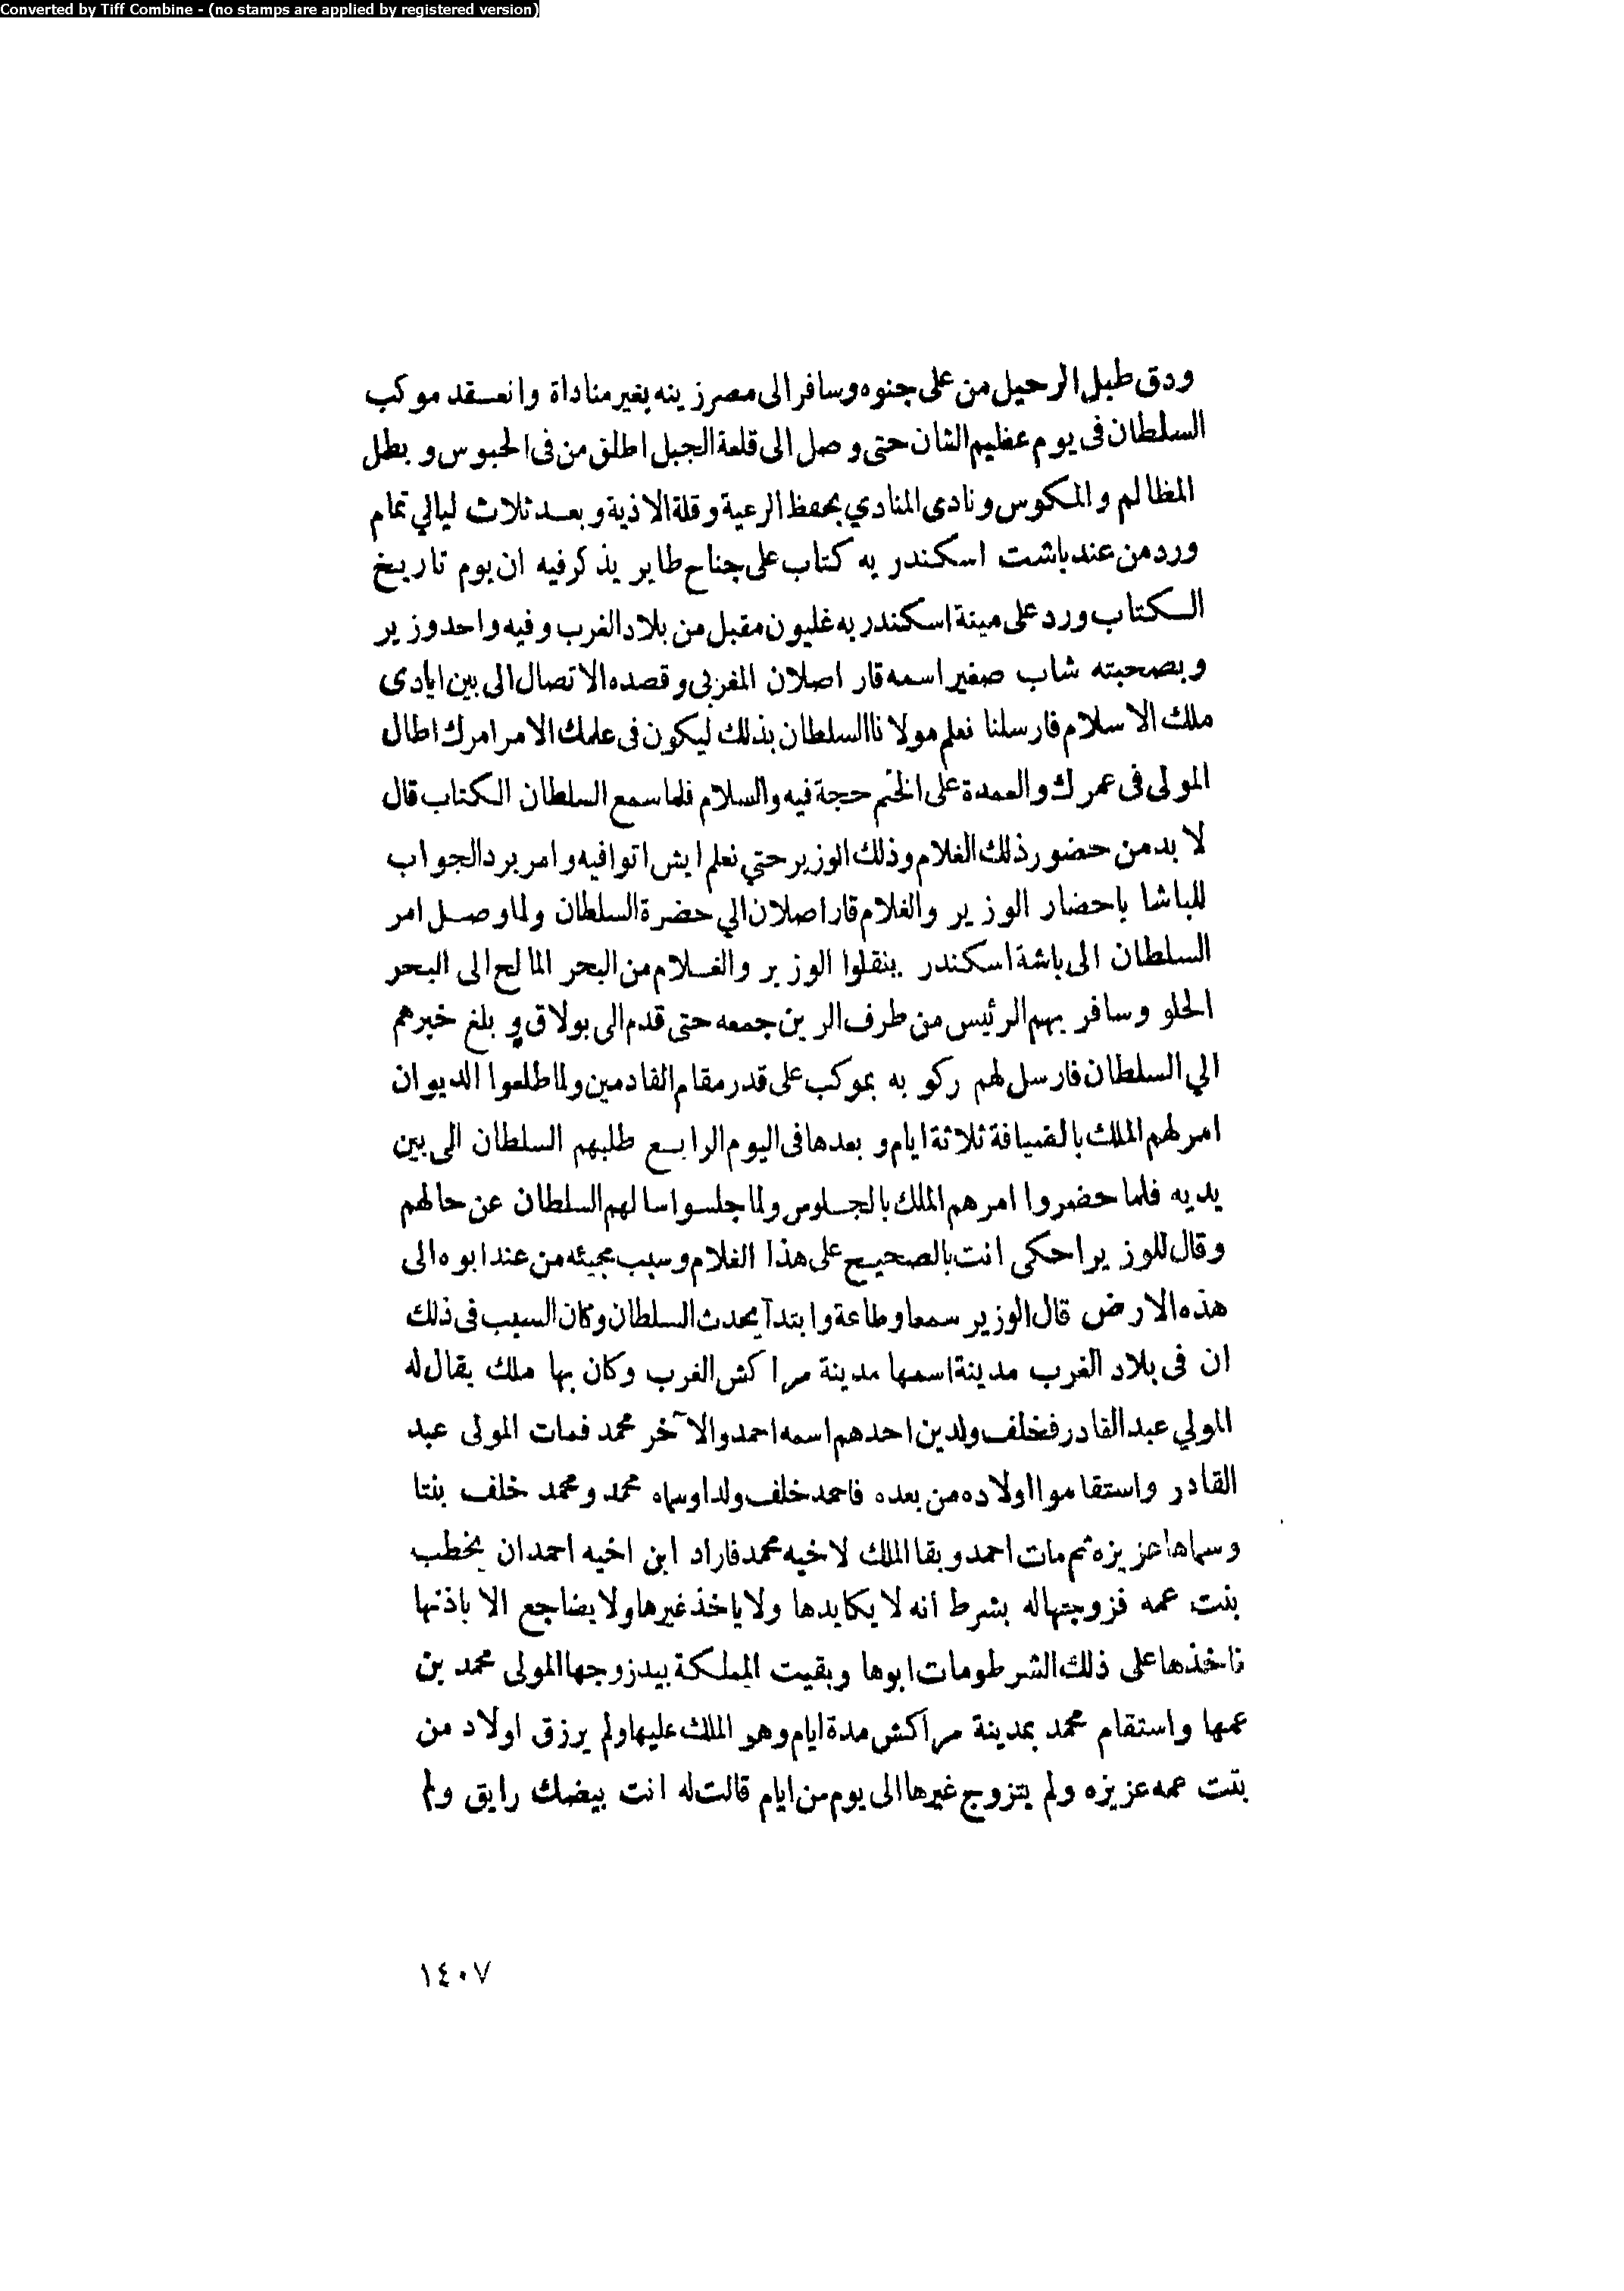 Converted by Tiff Combine - (no stamps are applied by registered version)
ودق طبل الرحيل من على جنوه وسافر الى مصر زينه بغير مناداة وانعقد موكب
السلطان فى يوم عظيم الشان حتى وصل الى قلعة الجبل اطلق من فى الحبوس وبطل
المظالم والمكوس ونادى المنادي بحفظ الرعية وقلة الاذية وبعد ثلاث ليالي تمام
ورد من عند باشت اسكندريه كتاب على جناح طاير يذكر فيه ان يوم تاريخ
الكتاب ورد على مينة اسكندريه غليون مقبل من بلاد الغرب وفيه واحد وزير
وبصحبته شاب صغير اسمه قار اصلان المغربى وقصده الاتصال الى بين ايادى
ملك الاسلام فارسلنا نعلم مولانا السلطان بذلك ليكون فى علمك الامر امرك اطال
المولى فى عمرك والعمدة على الختم حجة فيه والسلام فلما سمع السلطان الكتاب قال
لا بد من حضور ذلك الغلام وذلك الوزير حتي نعلم ايش اتوا فيه وامر برد الجواب
للباشا باحضار الوزير والغلام قار اصلان الي حضرة السلطان ولما وصل امر
السلطان الى باشة اسكندر ينقلوا الوزير والغلام من البحر المالح الى البحر
الحلو وسافر بهم الرئيس من طرف الرين جمعه حتى قدم الى بولاق و بلغ خبرهم
الي السلطان فارسل لهم ركوبه بموكب على قدر مقام القادمين ولما طلعوا الديوان
امر لهم الملك بالضيافة ثلاثة ايام وبعدها فى اليوم الرابع طلبهم السلطان الى بين
يديه فلما حضروا امرهم الملك بالجلوس ولما جلسوا سالهم السلطان عن حالهم
وقال للوزير احكى انت بالصحيح على هذا الغلام وسبب مجيئه من عند ابوه الى
هذه الارض قال الوزير سمعا وطاعة وابتدآ يحدث السلطان وكان السبب فى ذلك
ان فى بلاد الغرب مدينة اسمها مدينة مراكش الغرب وكان بها ملك يقال له
المولي عبد القادر فخلف ولدين احدهم اسمه احمد والآخر محمد فمات المولى عبد
القادر واستقاموا اولاده من بعده فاحمد خلف ولدا وسماه محمد ومحمد خلف بنتا
وسماها عزيزه ثم مات احمد وبقا الملك لاخيه محمد فاراد ابن اخيه احمد ان يخطب
بنت عمه فزوجتها له بشرط أنه لا يكايدها ولا ياخذ غيرها ولا يضاجع الا باذنها
فاخذها على ذلك الشرط ومات ابوها وبقيت المملكة بيد زوجها المولى محمد بن
عمها واستقام محمد بمدينة مراكش مدة ايام وهو الملك عليها ولم يرزق اولاد من
بنت عمه عزيزه ولم يتزوج غيرها الى يوم من ايام قالت له انت بيضك رايق ولم
١٤٠٧